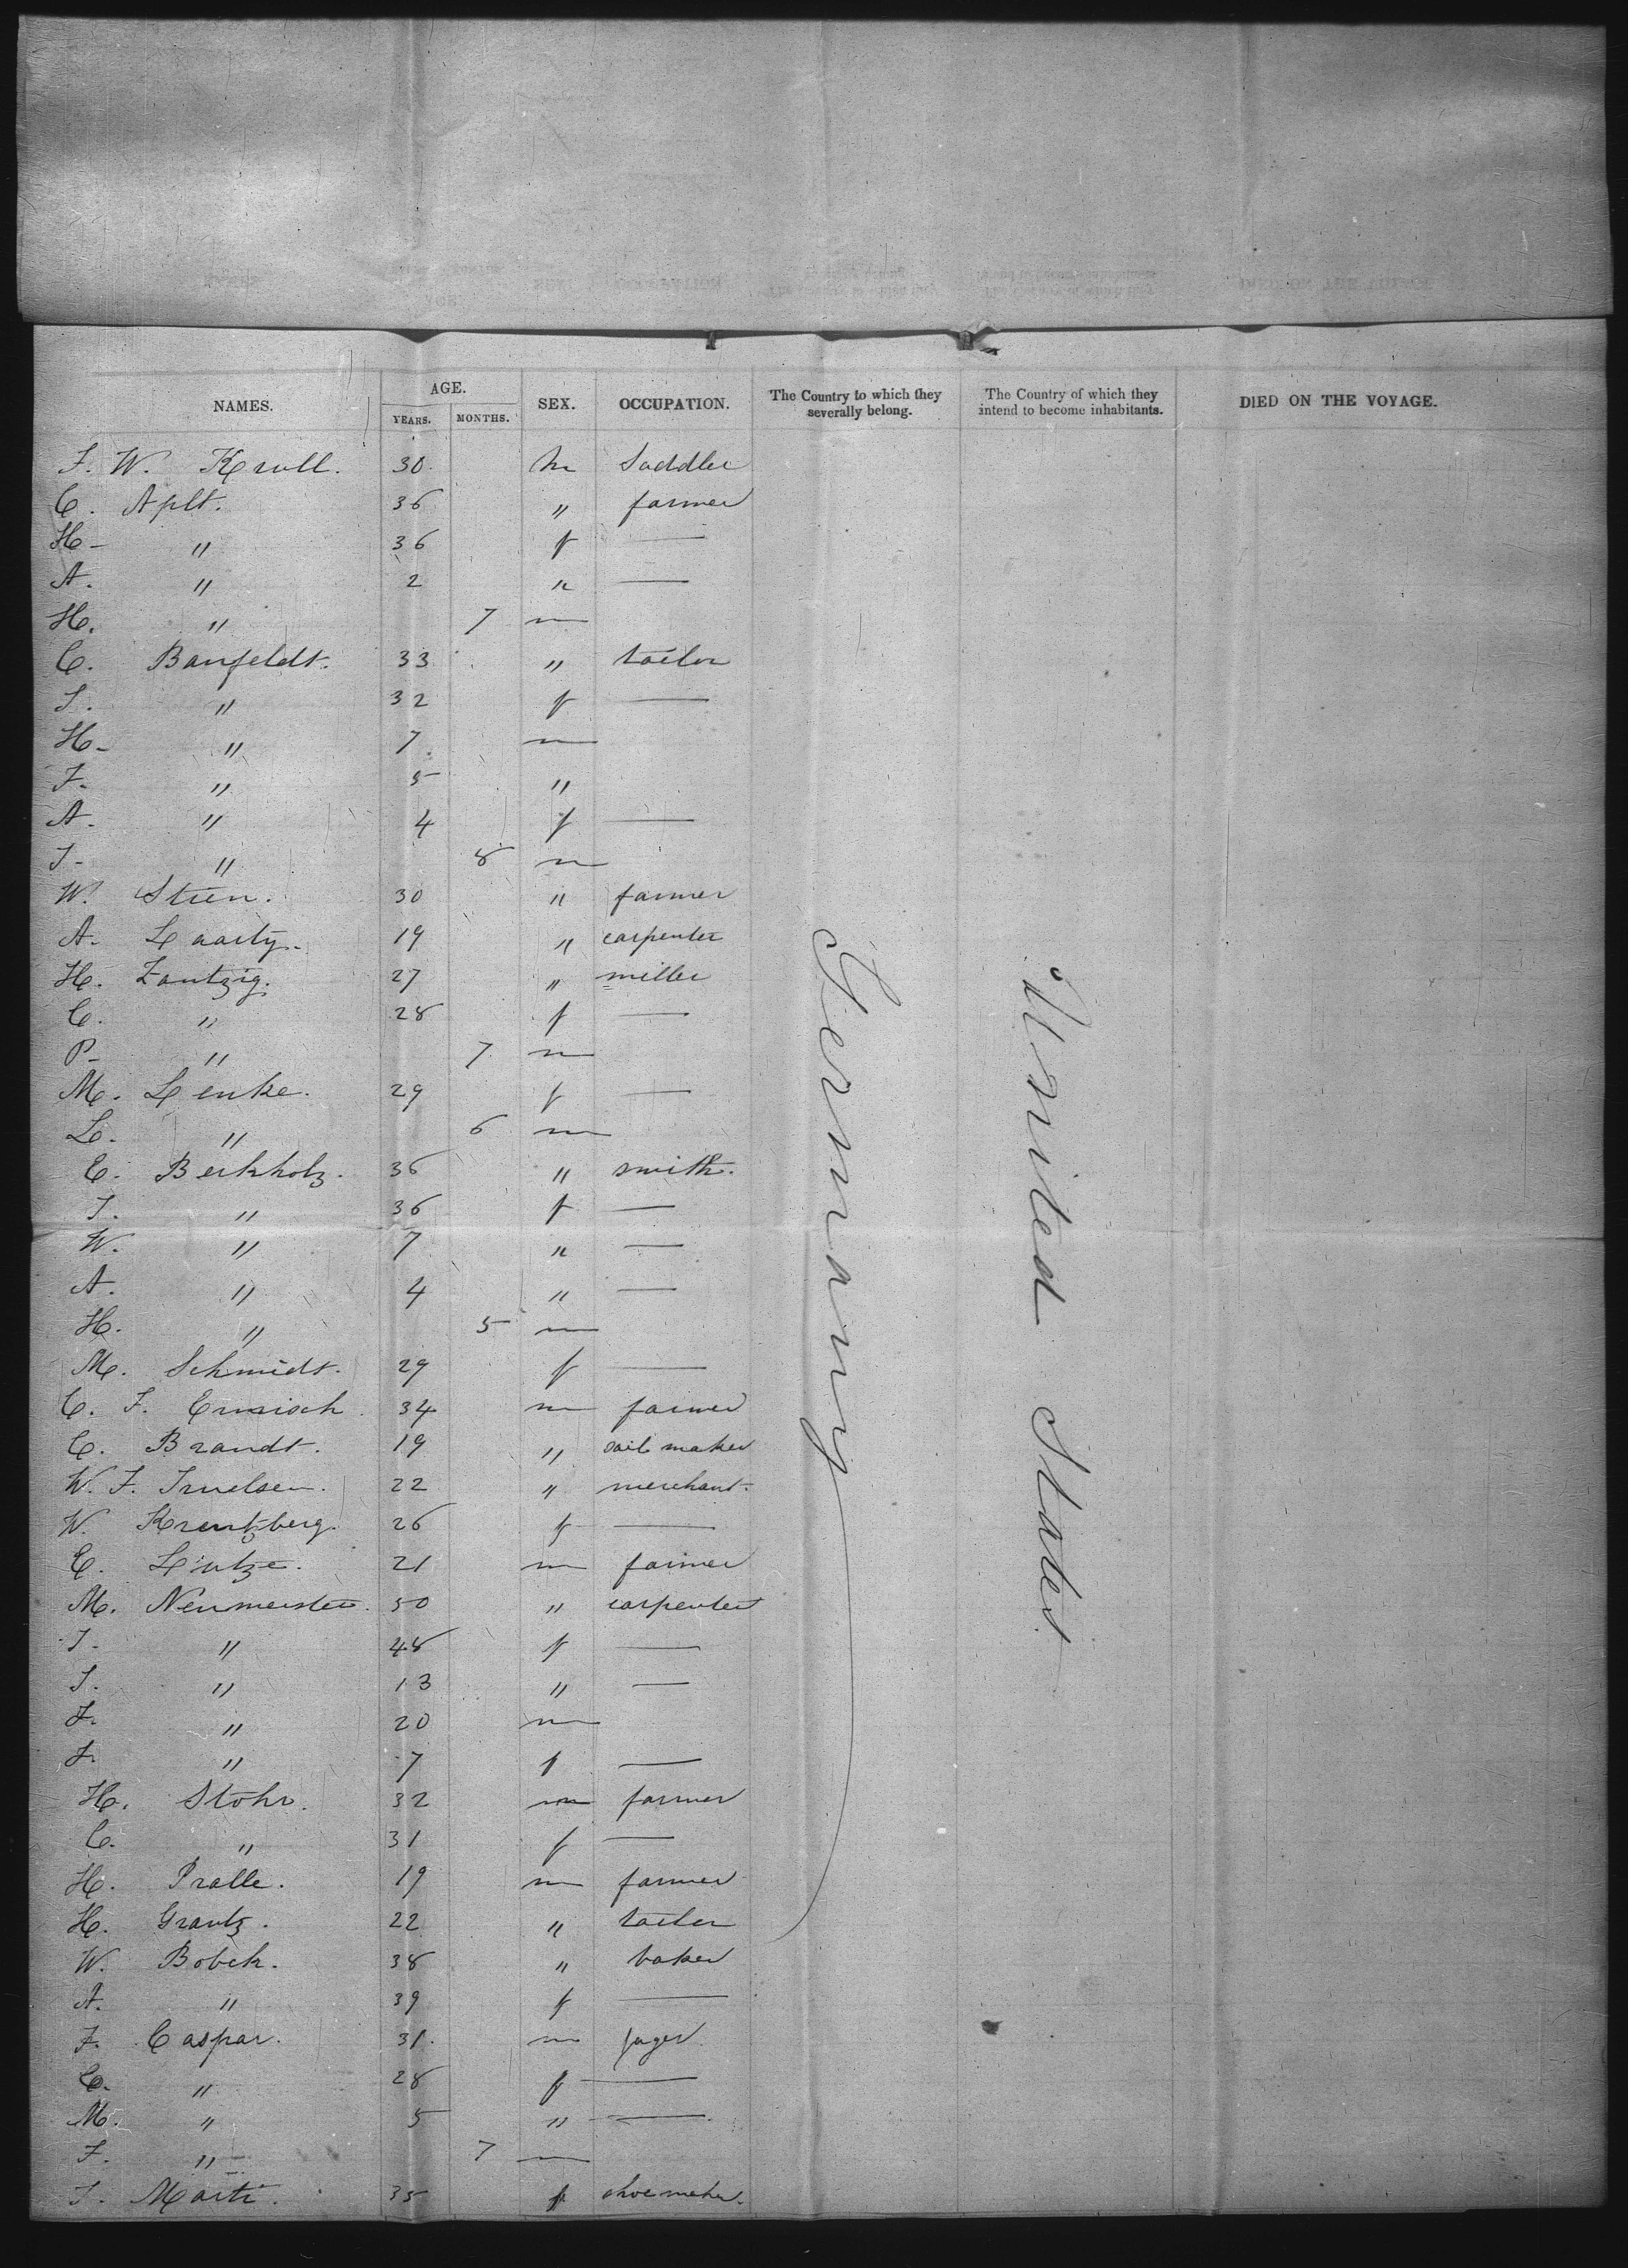 NAMES. AGE. YEARS. MONTHS. SEX. OCCUPATION. The Country to which they severally belong. The Country of which they intend to become inhabitants. DIED ON THE VOYAGE.
F. W. Krull. 30 m Saddler
C. Aplt. 36 " farmer
H. " 36 f —
A. " 2 " —
H. " 7 m
C. Banfeldt. 33 " tailor
S. " 32 f —
H. " 7 m
F. " 5 "
A. " 4 f —
J. " 8 m
W. Stien. 30 " farmer
A. Laarty. 19 " carpenter
H. Zantzig. 27 " miller
C. " 28 f —
P. " 7 m
M. Lenke. 29 f —
L. " 6 m
C. Berkholz. 36 " smith.
J. " 36 f —
W. " 7 " —
A. " 4 " —
H. " 5 m
M. Schmidt. 29 f —
C. F. Ernisch 34 m farmer
C. Brandt. 19 " sail maker
W. F. Truelsen. 22 " merchant.
W. Kreutzberg. 26 f —
C. Lutze. 21 m farmer
M. Neumeister. 50 " carpenter
J. " 48 f —
S. " 13 " —
F. " 20 m
F. " 7 f —
H. Stohr. 32 m farmer
C. " 31 f —
H. Pralle. 19 m farmer
H. Grantz. 22 " tailor
W. Bobek. 38 " baker
A. " 39 f —
F. Caspar. 31. m jager
C. " 28 f —
M. " 5 " —
F. " 7 m
J. Marti. 35 f shoemaker.
Germany
United States